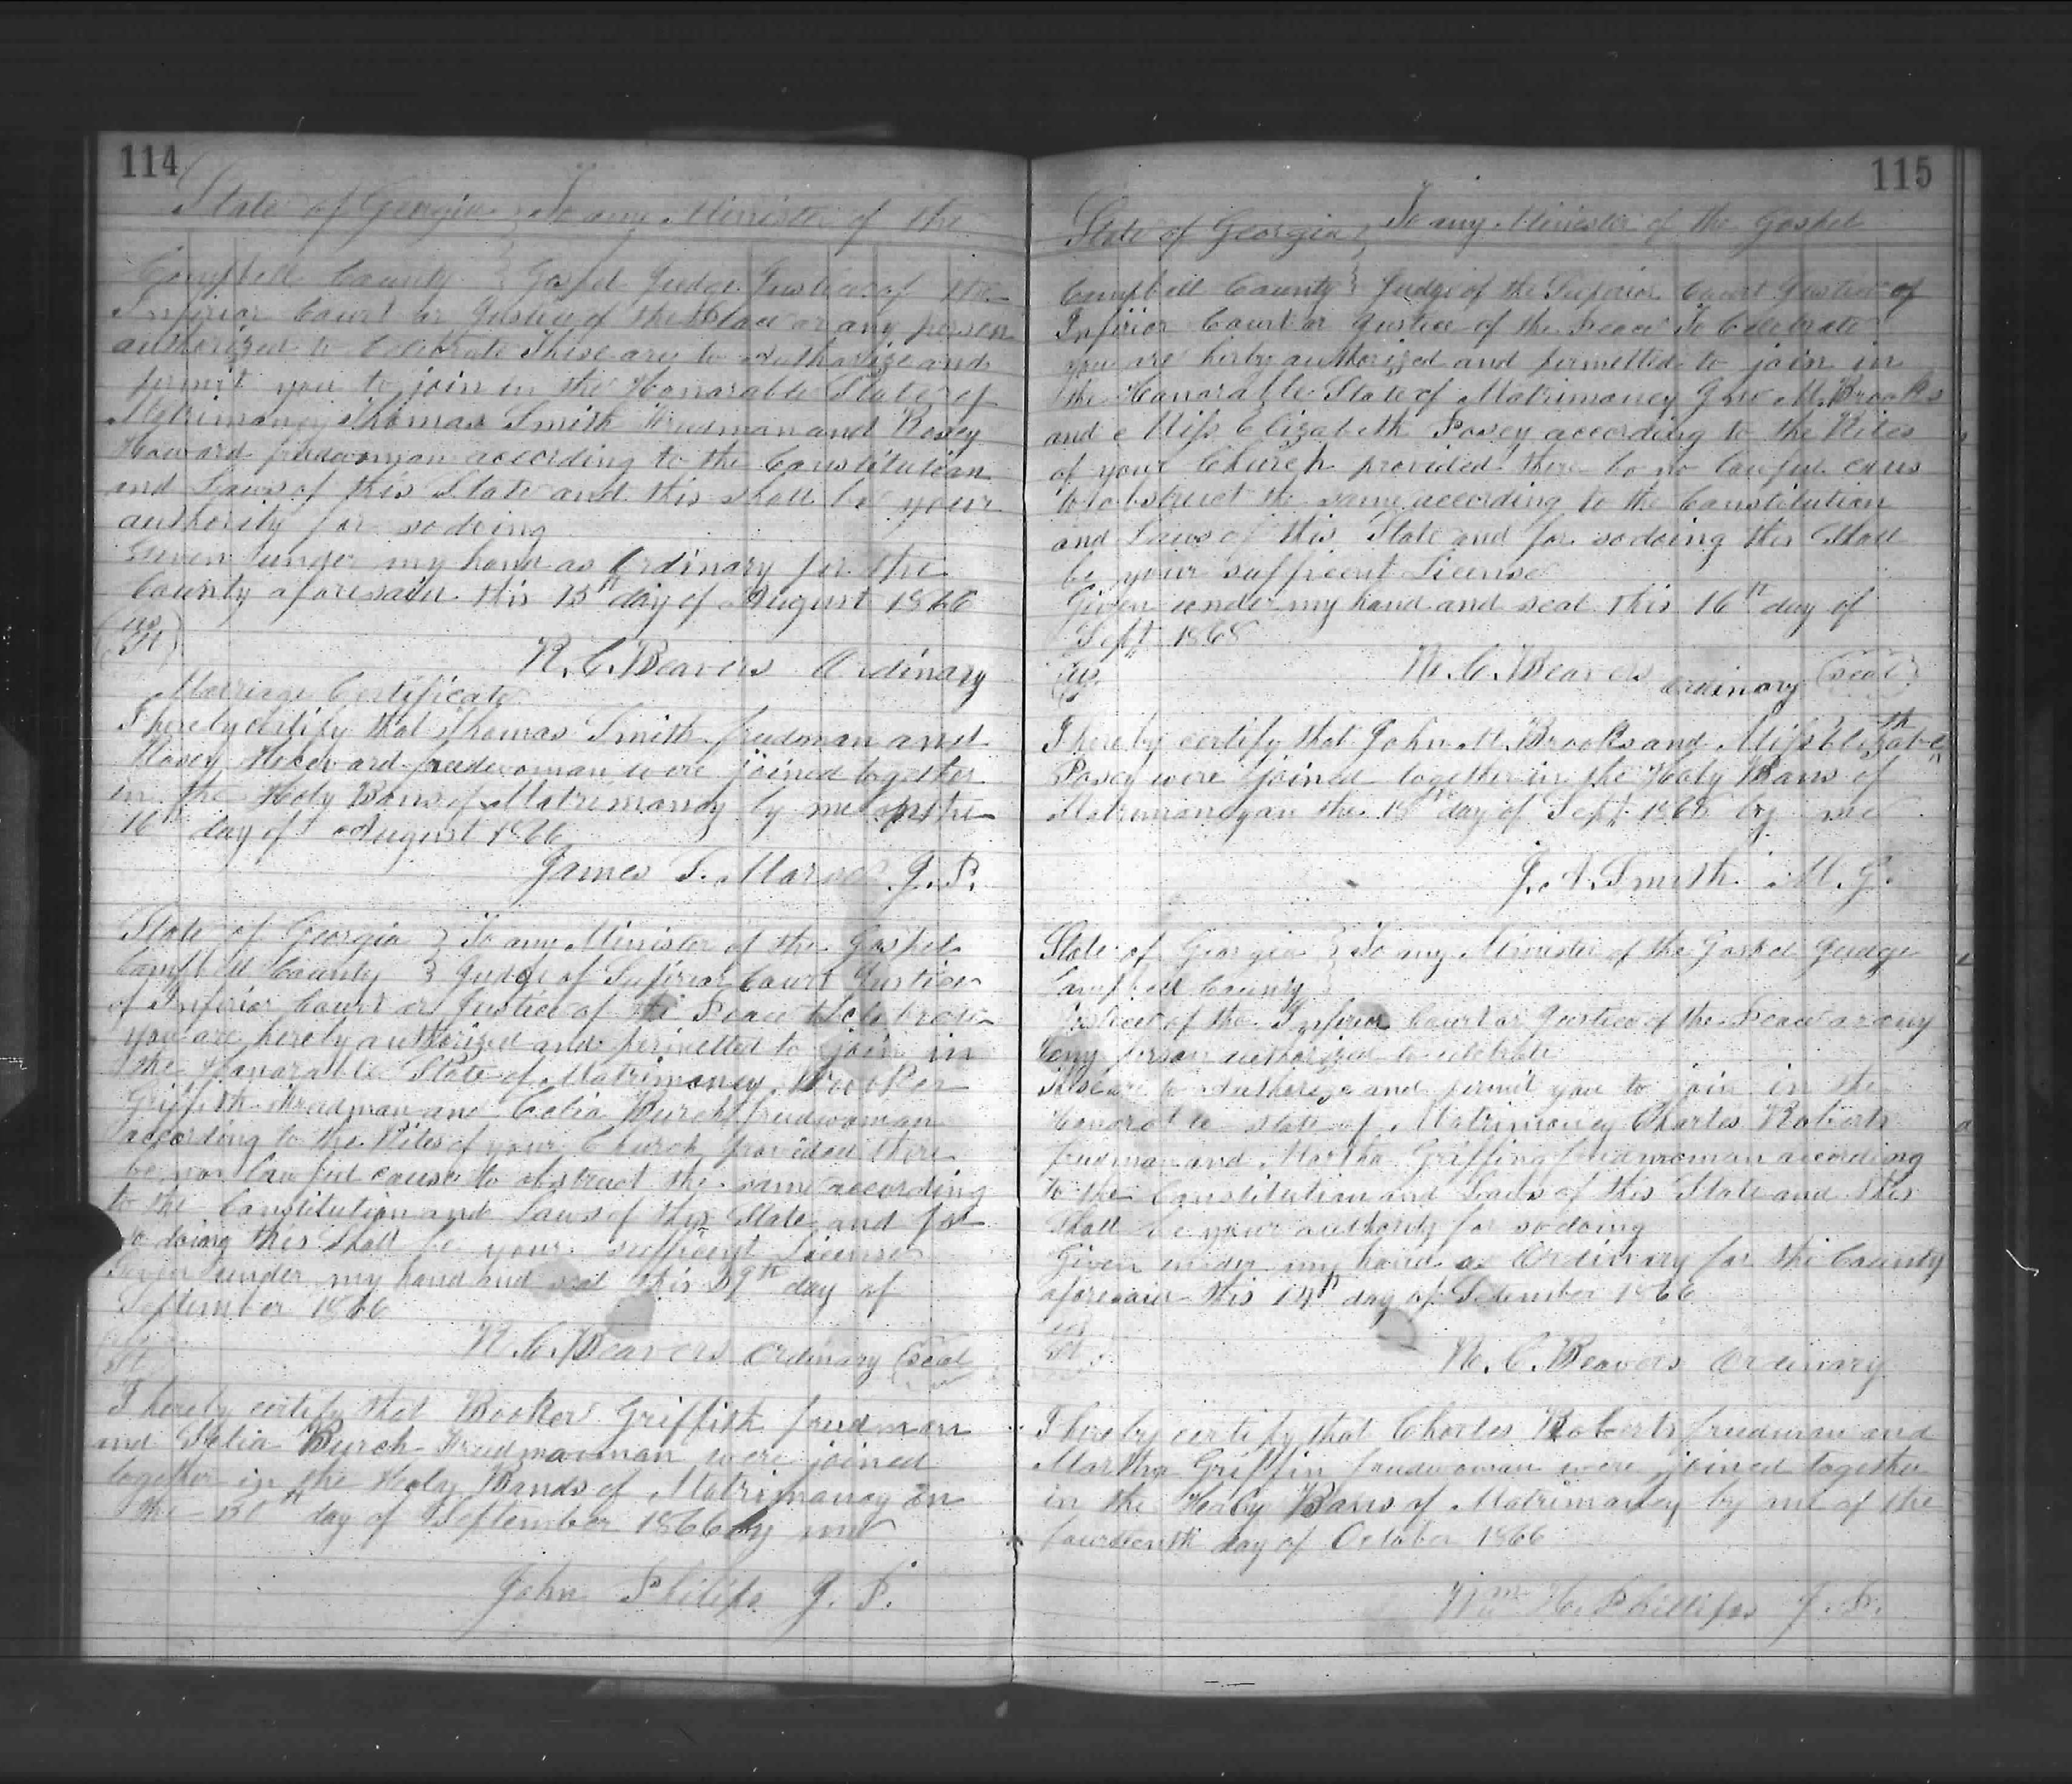 114
State of Georgia } To any Minister of the
Campbell County } Gospel Judge Justice of the
Inferior Court or Justice of the Peace or any person
authorized to Celebrate These are to Authorize and
permit you to join in the Honorable State of
Matrimoney Thomas Smith Freedman and Rosey
Howard freedwoman according to the Constitution
and Laws of this State and this shall be your
authority for so doing
Given under my hand as Ordinary for the
County aforesaid this 15th day of August 1866
N. C. Beavers Ordinary
Marriage Certificate
I hereby certify that Thomas Smith freedman and
Rosey Howard freedwoman were joined together
in the Holy Bans of Matrimoney by me on the
16th day of August 1866
James T. J. P.
State of Georgia } To any Minister of the Gospel
Campbell County } Judge of Superior Court Justice
of Inferior Court or Justice of the Peace to Celebrate
you are hereby authorized and permitted to join in
the Honorable State of Matrimoney Booker
Griffith Freedman and Celia Burch freedwoman
according to the Rites of your Church provided there
be no lawful cause to obstruct the same according
to the Constitution and Laws of this State and for
so doing this Shall be your sufficent License
Given under my hand and seal this 29th day of
September 1866
N. C. Beavers Ordinary (Seal)
I hereby certify that Booker Griffith freedman
and Celia Burch were joined
together in the Holy Bands of Matrimoney on
the 30th day of September 1866 by me
John Philips J. P.
115
State of Georgia } To any Minister of the Gospel
Campbell County } Judge of the Superior Court Justice of
Inferior Court or Justice of the Peace To Celebrate
you are hirby authorized and permitted to join in
the Honorable State of Matrimoney Jno M. Brooks
and Miss Elizabeth Posey according to the Rites
of your Church provided there be no lawful caus
to obstruct the same according to the Constitution
and Laws of this State and for so doing this Shall
be your sufficent License
Given under my hand and seal this 16th day of
Sept 1868
N. C. Beavers ordinary (seal)
I hereby certify that John M. Brooks and Miss Elizabeth
Posey were joined together in the Holy Bans of
Matrimoney on the 18th day of Sept 1868 by me
J. A. Smith M. G.
State of Georgia } To any Minister of the Gospel Judge
Campbell County }
Justice of the Inferior Court or Justice of the Peace or any
any person authorized to celebrate
These are to Authorize and permit you to join in the
Honorable state of Matrimoney Charles Roberts
freedman and Martha Griffing freedwoman according
to the Constitution and Laws of this State and this
Shall be your authority for so doing
Given under my hand as Ordinary for the County
aforesaid this 14th day of 1866
N. C. Beavers Ordinary
I hereby certify that Charles Roberts freedman and
Martha Griffin freedwoman were joined together
in the Holy Bans of Matrimoney by me of the
fourteenth day of October 1866
Wm H. Phillips J. P.